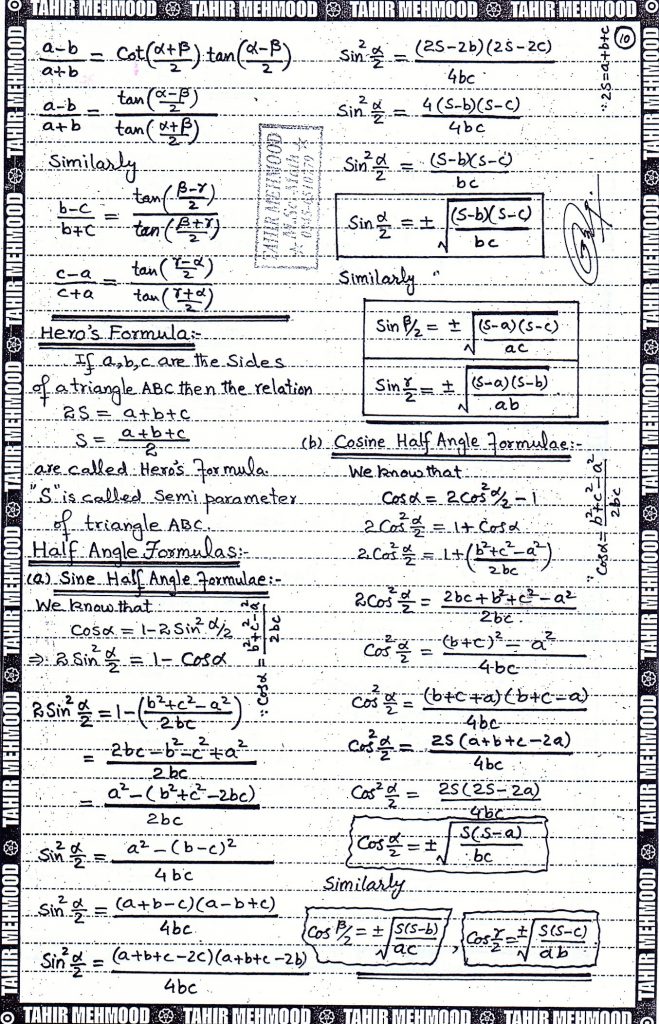 TAHIR MEHMOOD TAHIR MEHMOOD TAHIR MEHMOOD TAHIR MEHMOOD
10
∵ 2S=a+b+c
a-b/a+b = Cot(α+β/2) tan(α-β/2)
a-b/a+b = tan(α-β/2)/tan(α+β/2)
Similarly
b-c/b+c = tan(β-γ/2)/tan(β+γ/2)
c-a/c+a = tan(γ-α/2)/tan(γ+α/2)
TAHIR MEHMOOD
M.Sc. Math
Hero's Formula:-
If a,b,c are the Sides
of a triangle ABC then the relation
2S = a+b+c
S = a+b+c/2
are called Hero's Formula.
"S" is called Semi parameter
of triangle ABC.
Half Angle Formulas:-
(a) Sine Half Angle Formulae:-
We know that
Cosα = 1-2Sin² α/2
⇒ 2Sin² α/2 = 1- Cosα
∵ Cosα = b²+c²-a²/2bc
2Sin² α/2 = 1-(b²+c²-a²/2bc)
= 2bc-b²-c²+a²/2bc
= a²-(b²+c²-2bc)/2bc
Sin² α/2 = a²-(b-c)²/4bc
Sin² α/2 = (a+b-c)(a-b+c)/4bc
Sin² α/2 = (a+b+c-2c)(a+b+c-2b)/4bc
Sin² α/2 = (2S-2b)(2S-2c)/4bc
Sin² α/2 = 4(S-b)(S-c)/4bc
Sin² α/2 = (S-b)(S-c)/bc
Sin α/2 = ± √(S-b)(S-c)/bc
Similarly "
Sin β/2 = ± √(S-a)(S-c)/ac
Sin γ/2 = ± √(S-a)(S-b)/ab
(b) Cosine Half Angle Formulae:-
We know that
Cosα = 2Cos² α/2 -1
2Cos² α/2 = 1+Cosα
2Cos² α/2 = 1+(b²+c²-a²/2bc)
∵ Cosα = b²+c²-a²/2bc
2Cos² α/2 = 2bc+b²+c²-a²/2bc
Cos² α/2 = (b+c)²-a²/4bc
Cos² α/2 = (b+c+a)(b+c-a)/4bc
Cos² α/2 = 2S(a+b+c-2a)/4bc
Cos² α/2 = 2S(2S-2a)/4bc
Cos α/2 = ± √S(S-a)/bc
Similarly
Cos β/2 = ± √S(S-b)/ac , Cos γ/2 = ± √S(S-c)/ab
TAHIR MEHMOOD TAHIR MEHMOOD TAHIR MEHMOOD TAHIR MEHMOOD